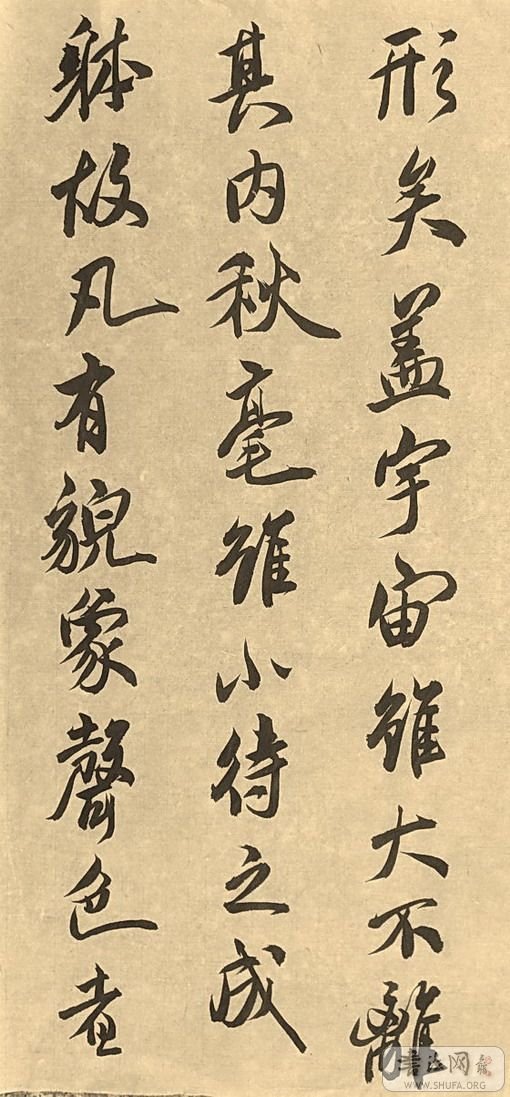 形矣盖宇宙雖大不離
其内秋毫雖小待之成
躰故凡有貌象聲色者
書法网
WWW.SHUFA.ORG